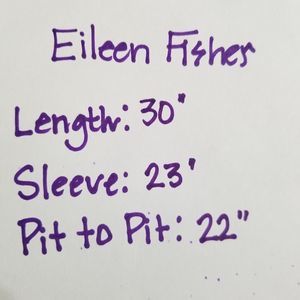 Eileen Fisher
Length: 30"
Sleeve: 23'
Pit to Pit: 22"